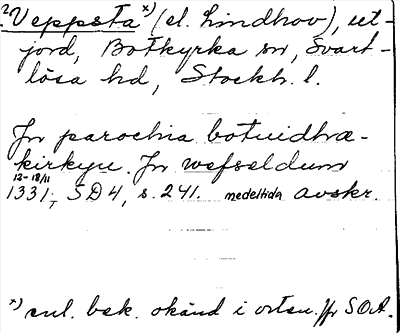 ?Veppsta x) (el. Lindhov), ut-
jord, Botkyrka sn, Svart-
lösa hd, Stockh. l.
Jn parochia botuidhæ-
kirkyu. Jn wefsældum
12-18/11
1331, SD 4, s. 241. medeltida avskr.
x) enl. bsk. okänd i orten. Jfr SOÄ.